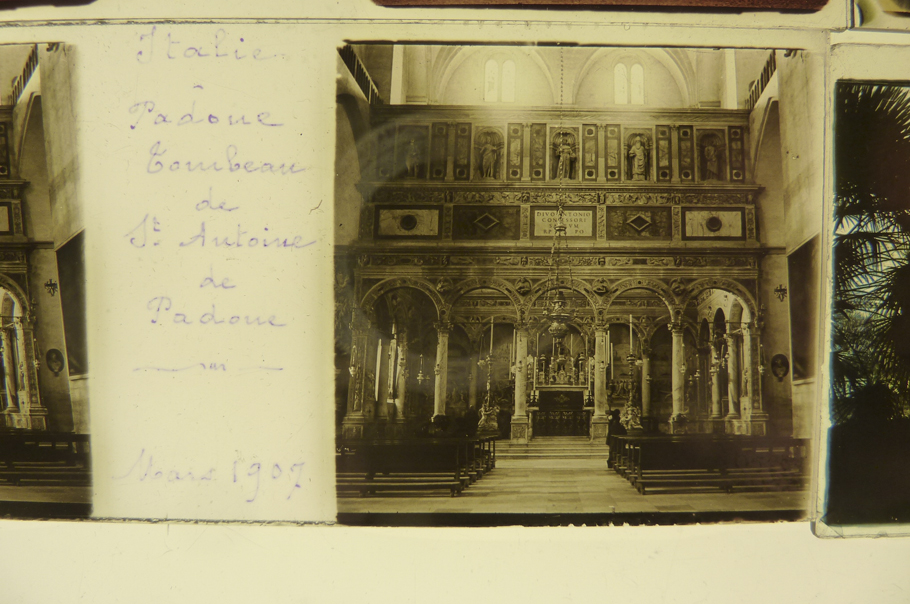 Italie
Padoue
Tombeau
de
St Antoine
de
Padoue
Mars 1907.
DIVO ANTONIO
CONFESSORI